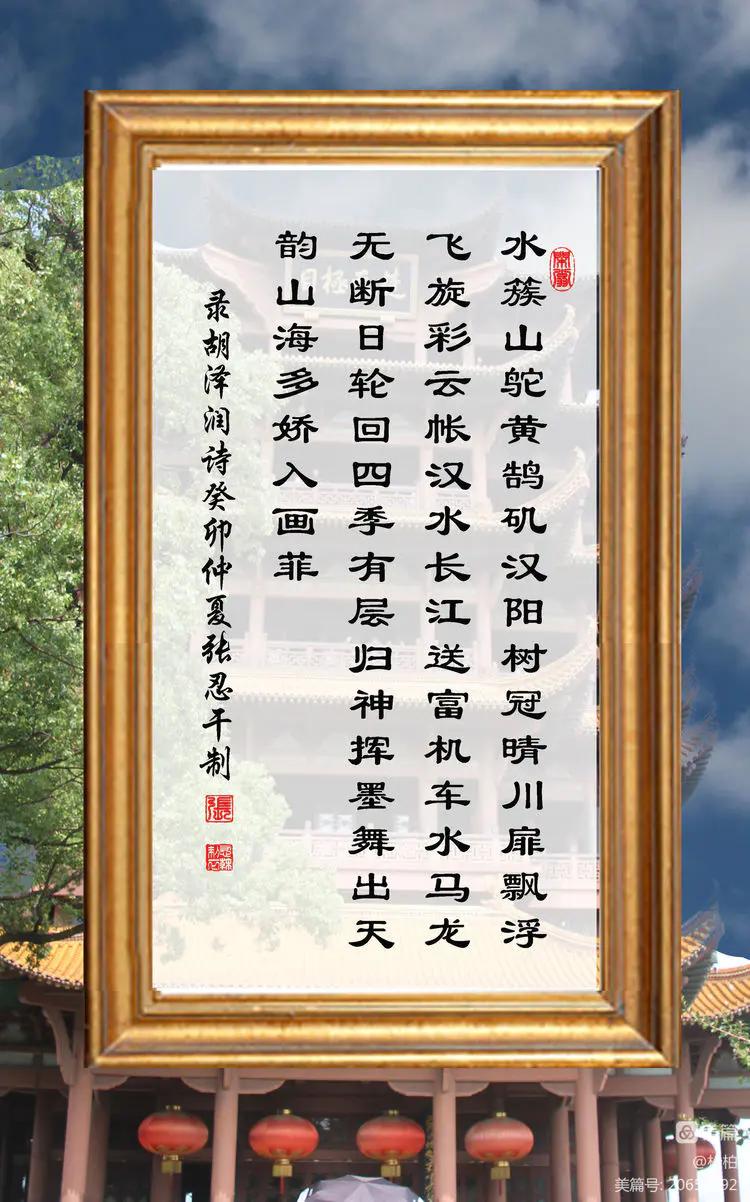 水簇山鸵黄鹄矶汉阳树冠晴川扉飘浮
飞旋彩云帐汉水长江送富机车水马龙
无断日轮回四季有层归神挥墨舞出天
韵山海多娇入画菲
录胡泽润诗癸卯仲夏张忍干制
張
美篇
美篇号: